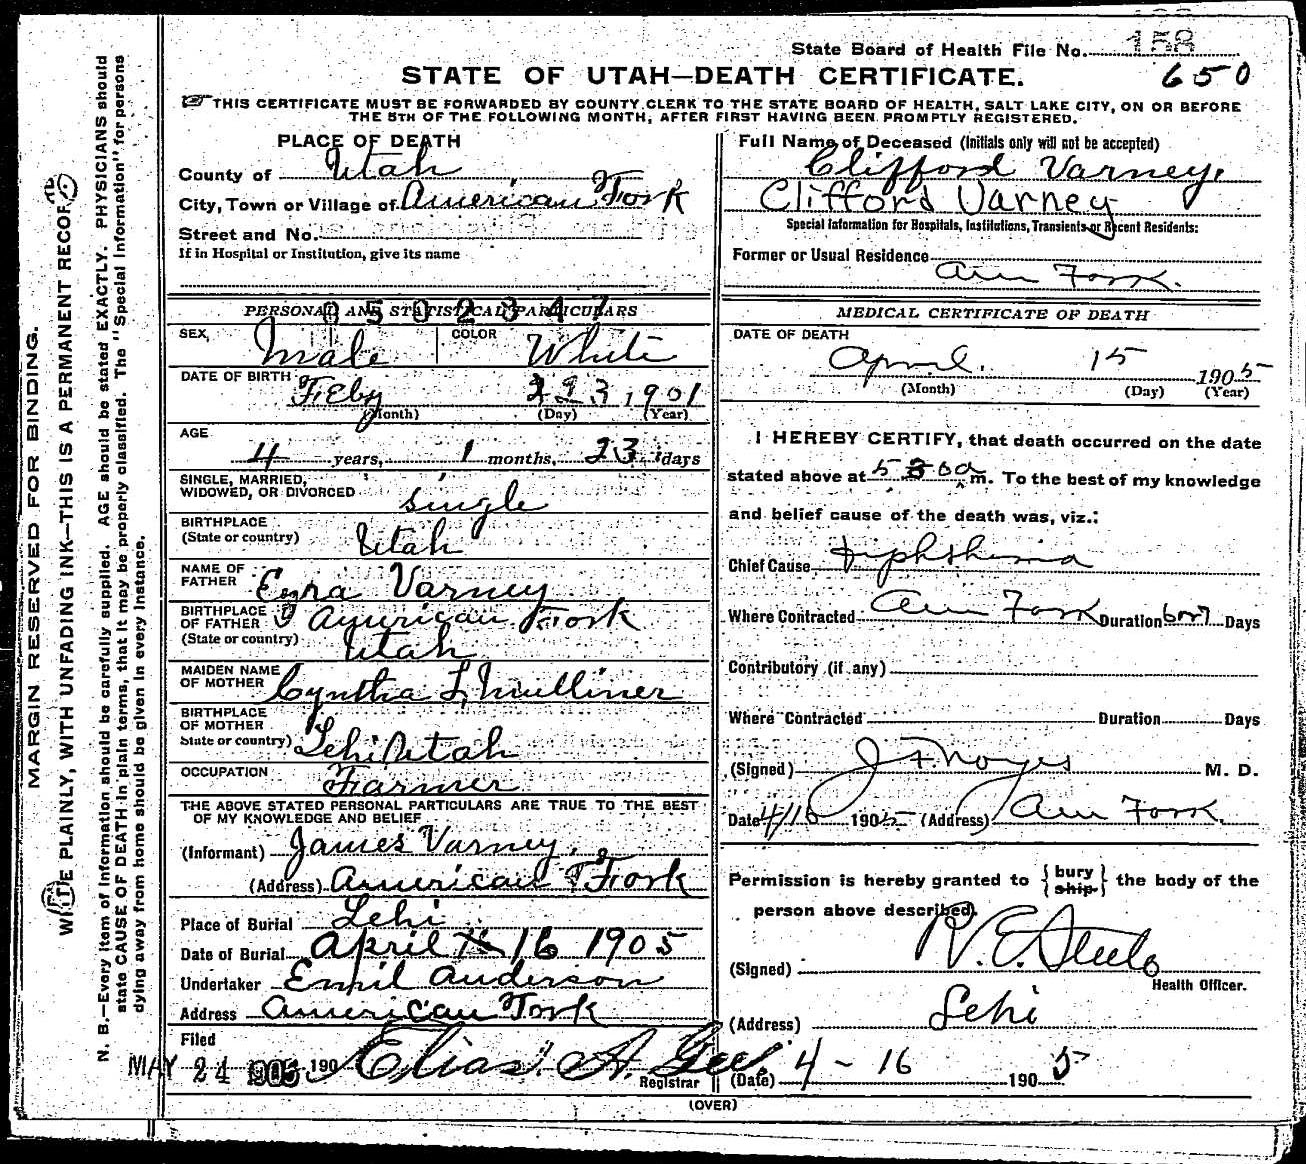 State Board of Health File No. 158
STATE OF UTAH—DEATH CERTIFICATE.
650
THIS CERTIFICATE MUST BE FORWARDED BY COUNTY CLERK TO THE STATE BOARD OF HEALTH, SALT LAKE CITY, ON OR BEFORE
THE 5TH OF THE FOLLOWING MONTH, AFTER FIRST HAVING BEEN PROMPTLY REGISTERED.
MARGIN RESERVED FOR BINDING.
WRITE PLAINLY, WITH UNFADING INK—THIS IS A PERMANENT RECORD
N. B.—Every item of information should be carefully supplied. AGE should be stated EXACTLY. PHYSICIANS should
state CAUSE OF DEATH in plain terms, that it may be properly classified. The "Special Information" for persons
dying away from home should be given in every instance.
PLACE OF DEATH
County of Utah
City, Town or Village of American Fork
Street and No.
If in Hospital or Institution, give its name
PERSONAL AND STATISTICAL PARTICULARS
0502347
SEX, Male COLOR White
DATE OF BIRTH Feby 23, 1901
(Month) (Day) (Year)
AGE
4 years, 1 months, 23 days
SINGLE, MARRIED,
WIDOWED, OR DIVORCED single
BIRTHPLACE
(State or country) Utah
NAME OF
FATHER Ezra Varney
BIRTHPLACE
OF FATHER American Fork
(State or country) Utah
MAIDEN NAME
OF MOTHER Cyntha L. Mulliner
BIRTHPLACE
OF MOTHER
State or country) Lehi Utah
OCCUPATION Farmer
THE ABOVE STATED PERSONAL PARTICULARS ARE TRUE TO THE BEST
OF MY KNOWLEDGE AND BELIEF
(Informant) James Varney,
(Address) American Fork
Place of Burial Lehi
Date of Burial April 16 1905
Undertaker Emil Anderson
Address American Fork
Filed
MAY 24 1905 190 Elias. A. Gee.
Registrar
Full Name of Deceased (Initials only will not be accepted)
Clifford Varney.
Clifford Varney
Special information for Hospitals, Institutions, Transients or Recent Residents:
Former or Usual Residence
Am Fork.
MEDICAL CERTIFICATE OF DEATH
DATE OF DEATH
April. 15 1905
(Month) (Day) (Year)
I HEREBY CERTIFY, that death occurred on the date
stated above at 5 30 a m. To the best of my knowledge
and belief cause of the death was, viz.:
Chief Cause Diphtheria
Where Contracted Am Fork Duration 6 or 7 Days
Contributory (if any)
Where Contracted Duration Days
(Signed) J F Noyes M. D.
Date 4/16 1905 (Address) Am Fork.
Permission is hereby granted to { bury ship } the body of the
person above described.
(Signed) R. E. Steele
Health Officer.
(Address) Lehi
(Date) 4 - 16 1905
(OVER)